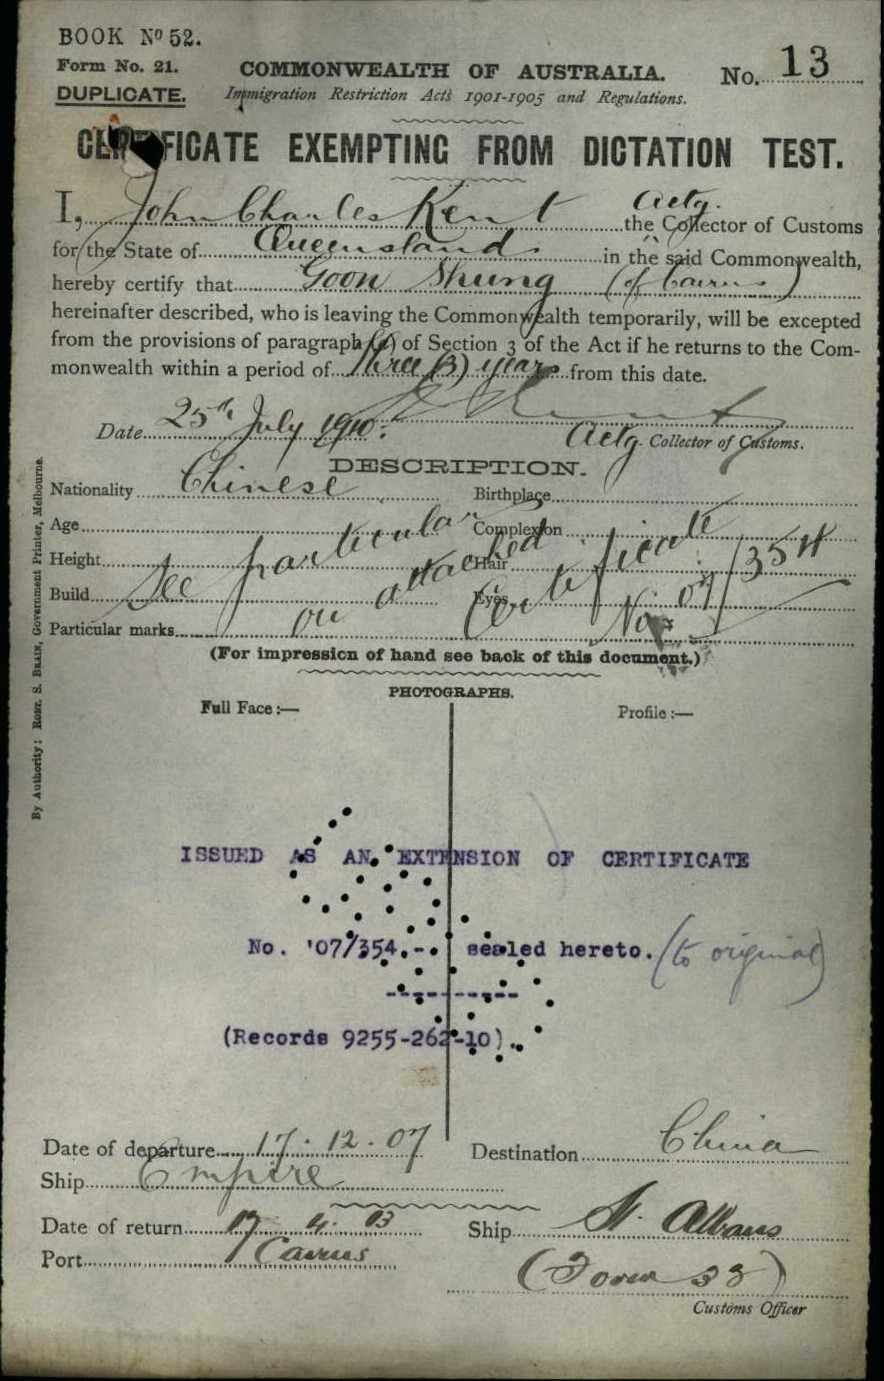 BOOK Nº 52.
Form No. 21.
DUPLICATE.
COMMONWEALTH OF AUSTRALIA.
No. 13
Immigration Restriction Acts 1901-1905 and Regulations.
CERTIFICATE EXEMPTING FROM DICTATION TEST.
I, John Charles Kent Actg. the Collector of Customs
for the State of Queensland in the said Commonwealth,
hereby certify that Goon Shung (of Cairns)
hereinafter described, who is leaving the Commonwealth temporarily, will be excepted
from the provisions of paragraph (a) of Section 3 of the Act if he returns to the Com-
monwealth within a period of three (3) years from this date.
Date 25th July 1910.
Actg. Collector of Customs.
DESCRIPTION.
Nationality Chinese Birthplace
Age Complexion
Height Hair
Build Eyes
Particular marks
See particulars
on attached Certificate No. 07/354
(For impression of hand see back of this document.)
PHOTOGRAPHS.
Full Face :— Profile :—
ISSUED AS AN EXTENSION OF CERTIFICATE
No. '07/354,- sealed hereto. (to original)
----------
(Records 9255-262-10).
Date of departure 17. 12. 07 Destination China
Ship Empire
Date of return 17 4. 13 Ship St. Albans
Port Cairns
(Form 33)
Customs Officer
By Authority: ROBT. S. BRAIN, Government Printer, Melbourne.